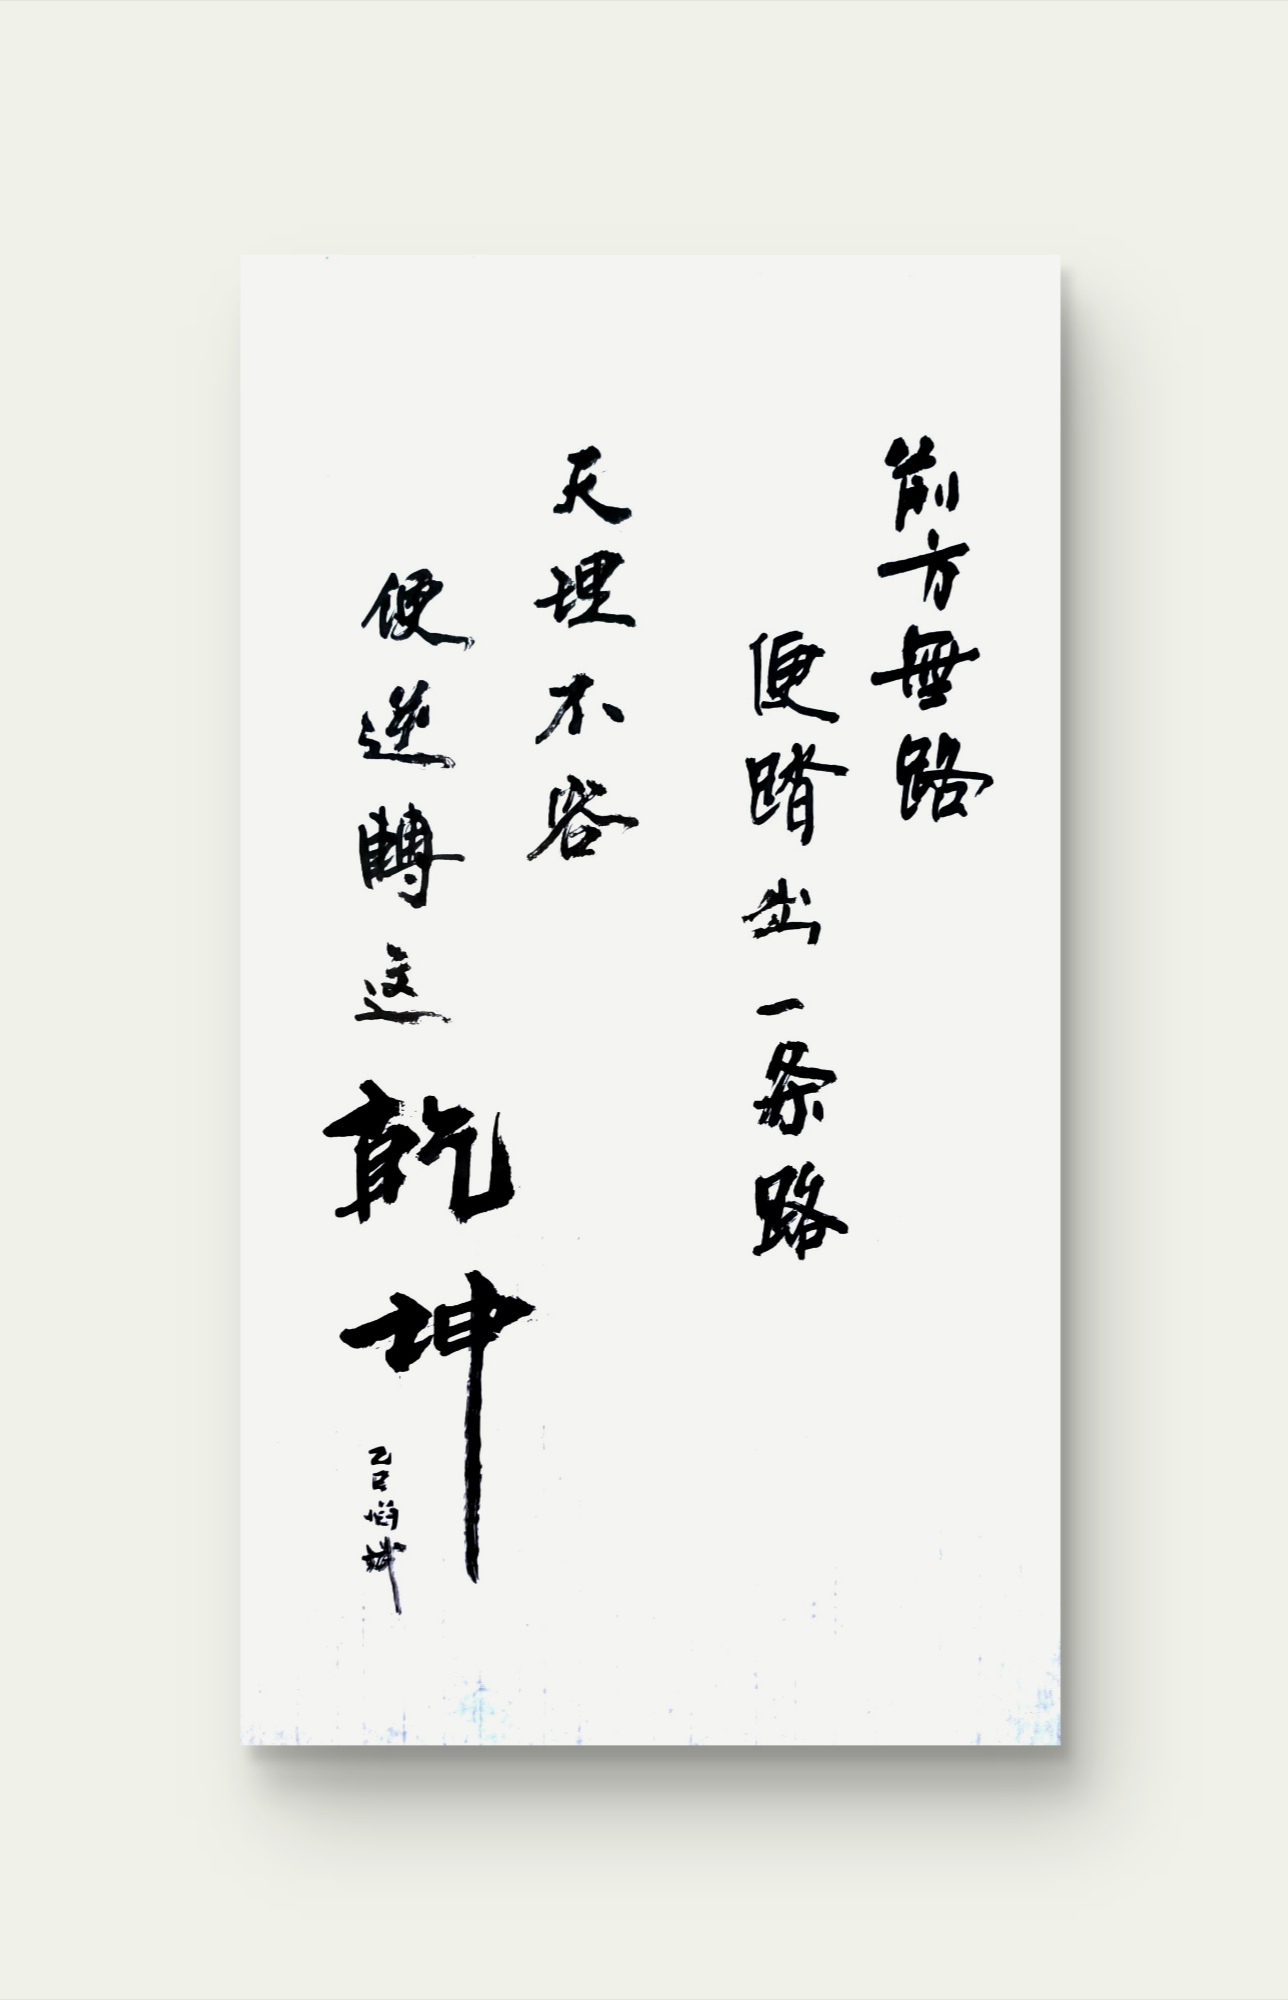 前方無路
便踏出一条路
天理不容
便逆轉這
乾坤
乙巳